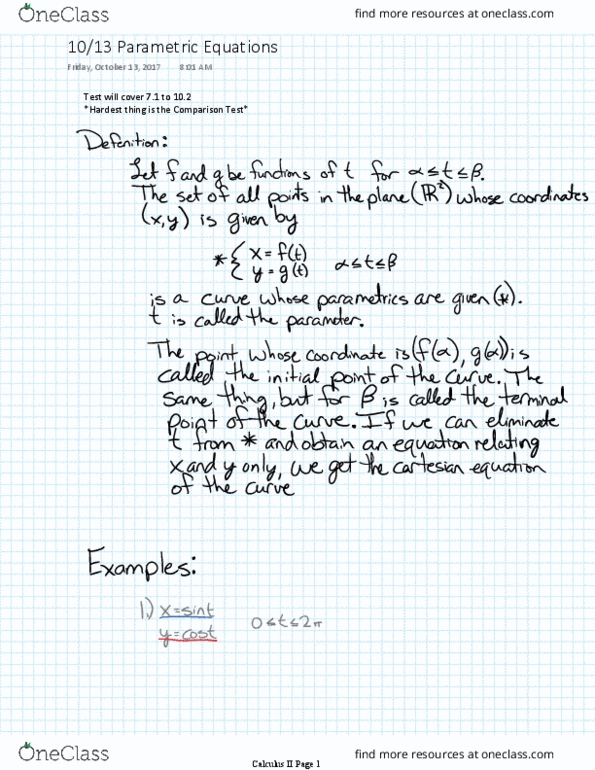 OneClass
find more resources at oneclass.com
10/13 Parametric Equations
Friday, October 13, 2017 8:01 AM
Test will cover 7.1 to 10.2
*Hardest thing is the Comparison Test*
Defenition:
Let f and g be functions of t for α≤t≤β.
The set of all points in the plane (ℝ²) whose coordinates
(x,y) is given by
* { x = f(t)
y = g(t) α≤t≤β
is a curve whose parametrics are given (*).
t is called the parameter.
The point, whose coordinate is (f(α), g(α)) is
called the initial point of the curve. The
same thing, but for β is called the terminal
point of the curve. If we can eliminate
t from * and obtain an equation relating
x and y only, we get the cartesian equation
of the curve
Examples:
1.) x=sint
y=cost 0≤t≤2π
OneClass
find more resources at oneclass.com
Calculus II Page 1